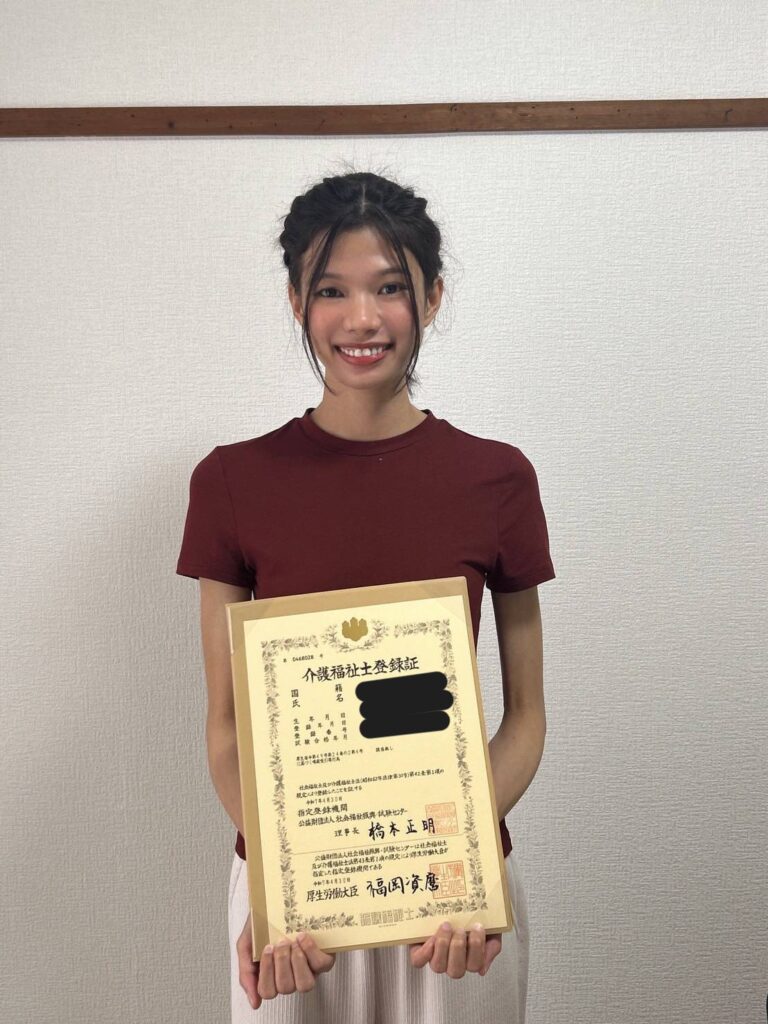 第 D468028 号
介護福祉士登録証
国籍
氏名
生年月日
登録年月日
登録番号
試験合格年月
社会福祉士及び介護福祉士法(昭和62年法律第30号)第42条第1項の
規定により登録したことを証する
令和7年4月30日
指定登録機関
公益財団法人 社会福祉振興・試験センター
理事長 橋本正明
公益財団法人社会福祉振興・試験センターは社会福祉士
及び介護福祉士法第43条第1項の規定により厚生労働大臣が
指定した指定登録機関である
令和7年4月30日
厚生労働大臣 福岡資麿
介護福祉士